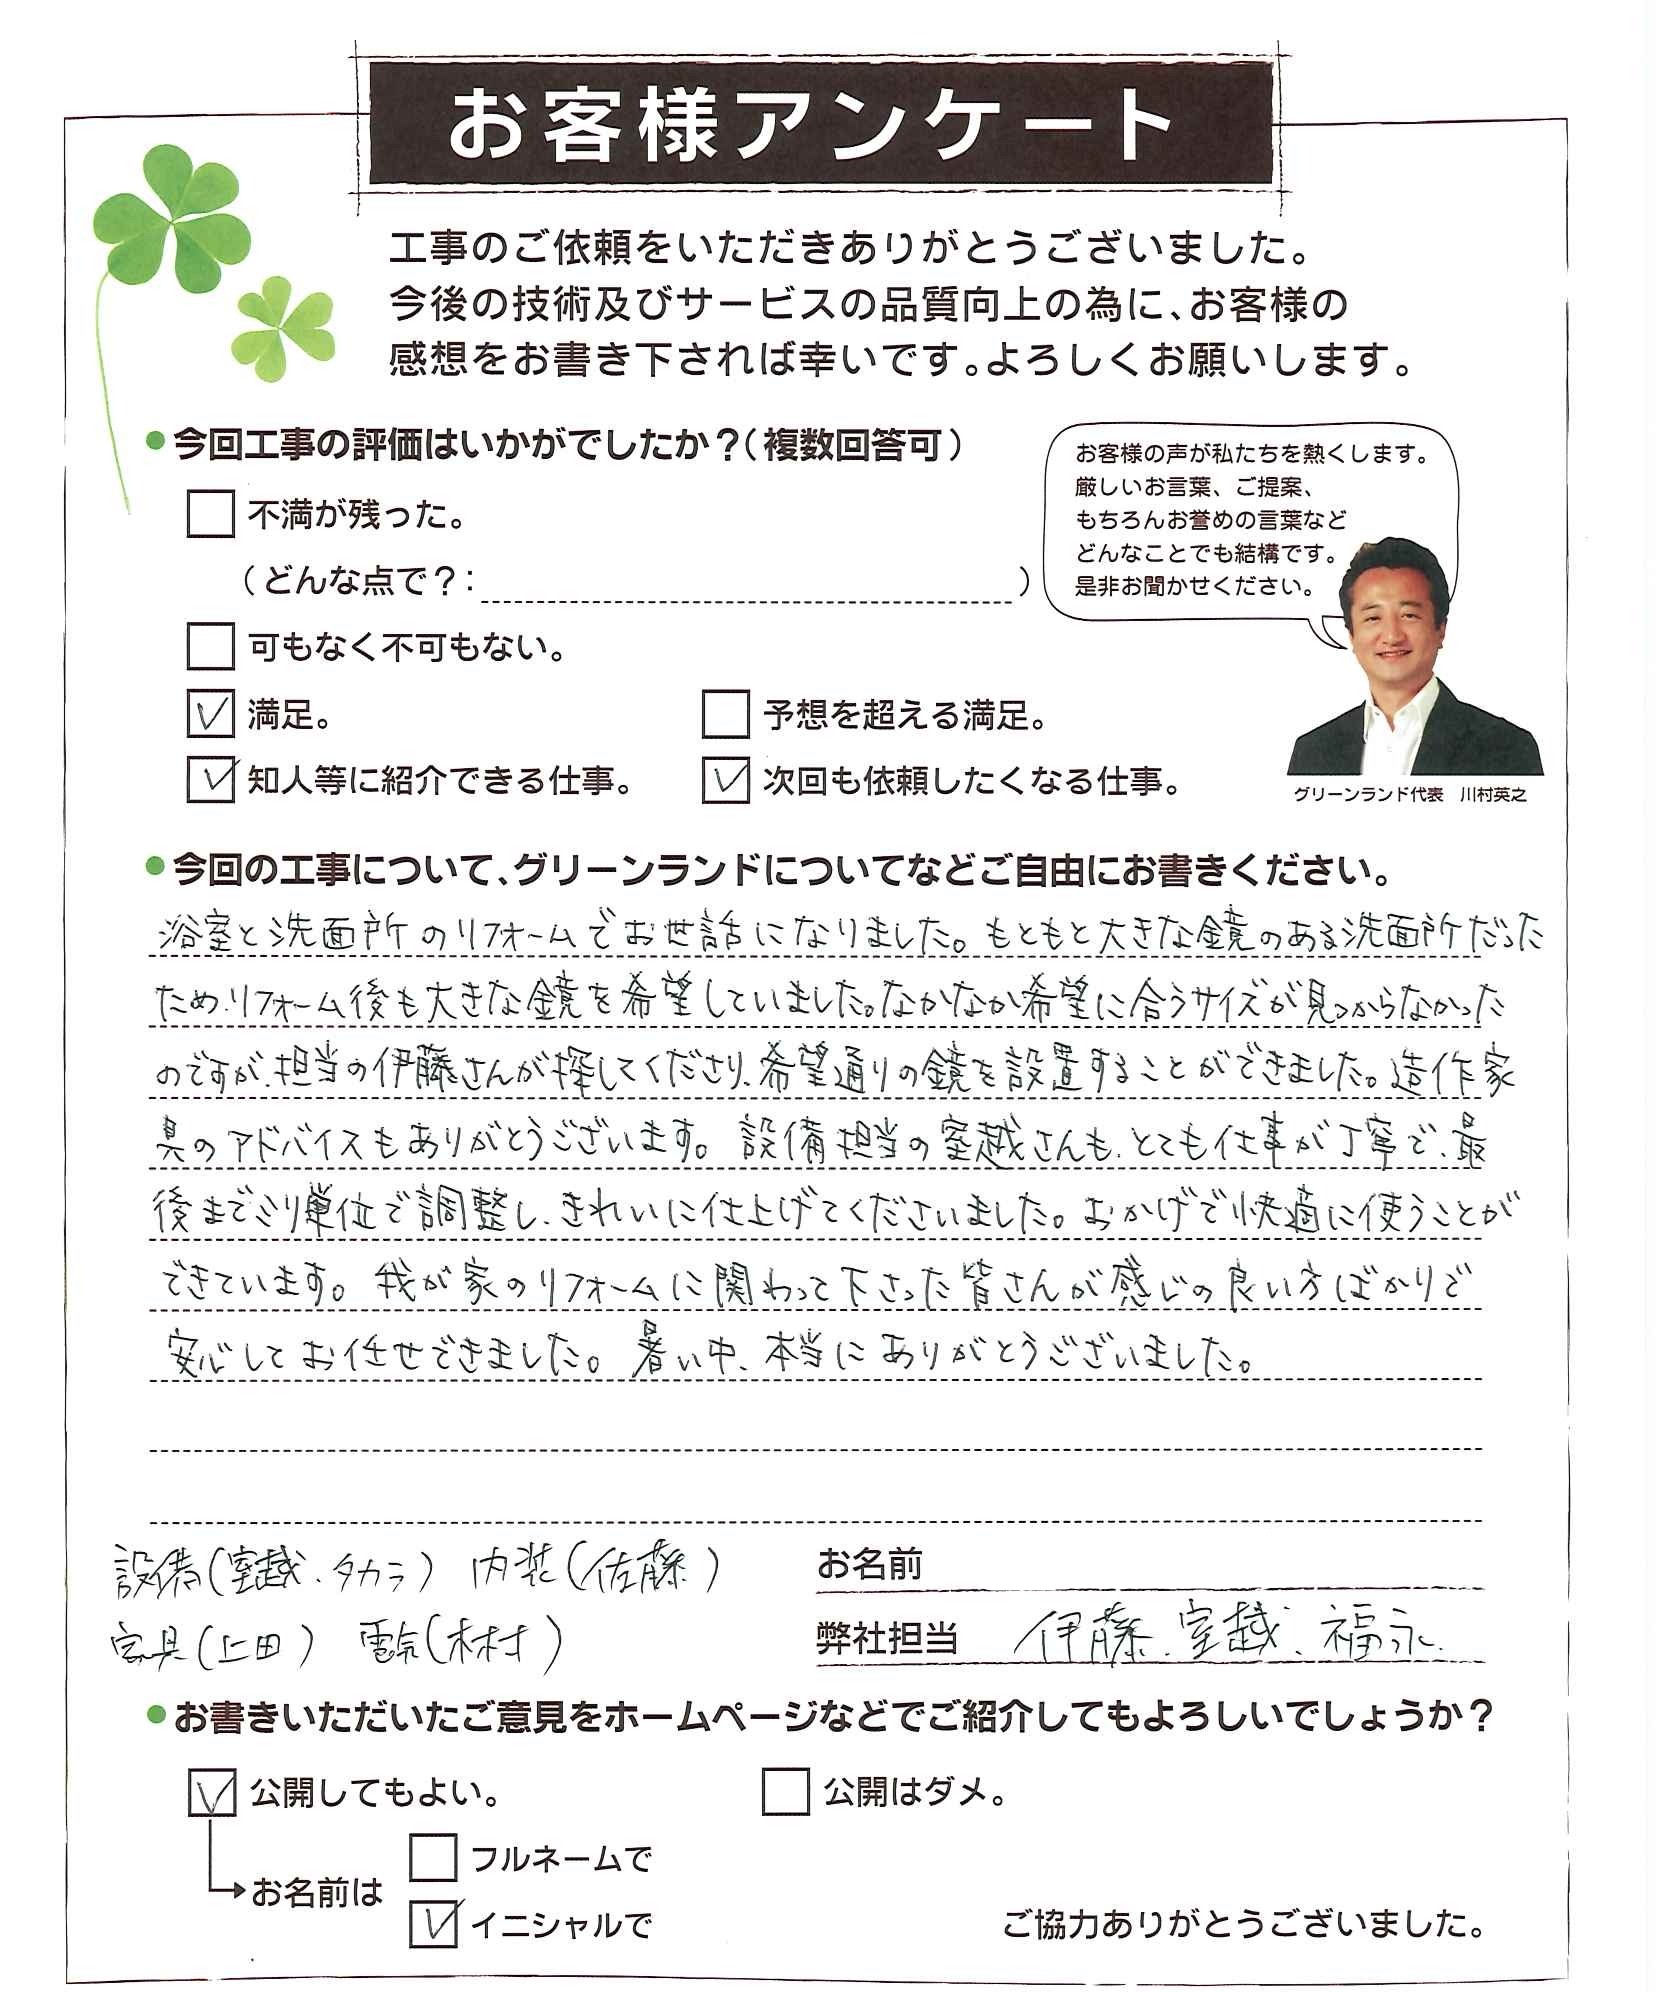 お客様アンケート
工事のご依頼をいただきありがとうございました。
今後の技術及びサービスの品質向上の為に、お客様の
感想をお書き下されば幸いです。よろしくお願いします。
●今回工事の評価はいかがでしたか？（複数回答可）
お客様の声が私たちを熱くします。
厳しいお言葉、ご提案、
もちろんお誉めの言葉など
どんなことでも結構です。
是非お聞かせください。
不満が残った。
（どんな点で？：　）
可もなく不可もない。
満足。
予想を超える満足。
知人等に紹介できる仕事。
次回も依頼したくなる仕事。
グリーンランド代表　川村英之
●今回の工事について、グリーンランドについてなどご自由にお書きください。
浴室と洗面所のリフォームでお世話になりました。もともと大きな鏡のある洗面所だった
ため、リフォーム後も大きな鏡を希望していました。なかなか希望に合うサイズが見つからなかった
のですが、担当の伊藤さんが探してくださり、希望通りの鏡を設置することができました。造作家
具のアドバイスもありがとうございます。設備担当の室越さんも、とても仕事が丁寧で、最
後までミリ単位で調整し、きれいに仕上げてくださいました。おかげで快適に使うことが
できています。我が家のリフォームに関わって下さった皆さんが感じの良い方ばかりで
安心してお任せできました。暑い中、本当にありがとうございました。
設備（室越、タカラ）　内装（佐藤）
家具（上田）　電気（木村）
お名前
弊社担当　伊藤、室越、福永
●お書きいただいたご意見をホームページなどでご紹介してもよろしいでしょうか？
公開してもよい。
公開はダメ。
お名前は
フルネームで
イニシャルで
ご協力ありがとうございました。